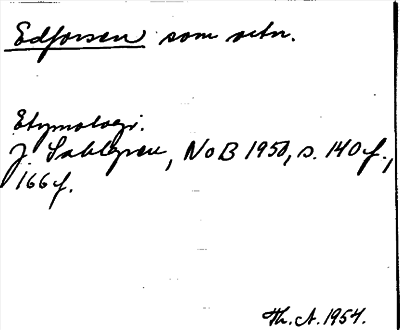 Edforsen som ortn.
Etymologi.
J. Sahlgren, NoB 1950, s. 140 f.,
166 f.
Th. A. 1954.